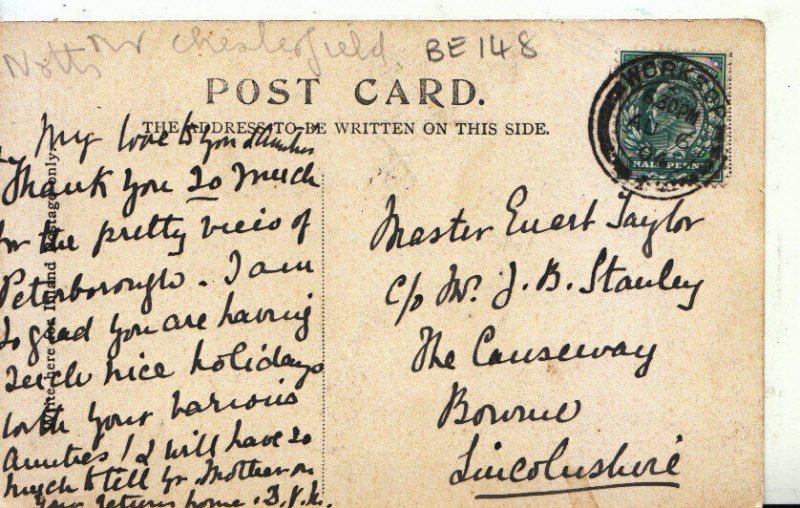 Notts nr Chesterfield.
BE 148
POST CARD.
THE ADDRESS TO BE WRITTEN ON THIS SIDE.
Write here for Inland Postage only.
WORKSOP
4.30PM
AU 6
04
HALF PENNY
My love to you & Aunties
Thank you so much
for the pretty view of
Peterborough. I am
so glad you are having
such nice holidays
with your various
Aunties! I will have so
much to tell yr. Mother on
your return home.
Master Evert Taylor
c/o Mr. J. B. Stanley
The Causeway
Bourne
Lincolnshire